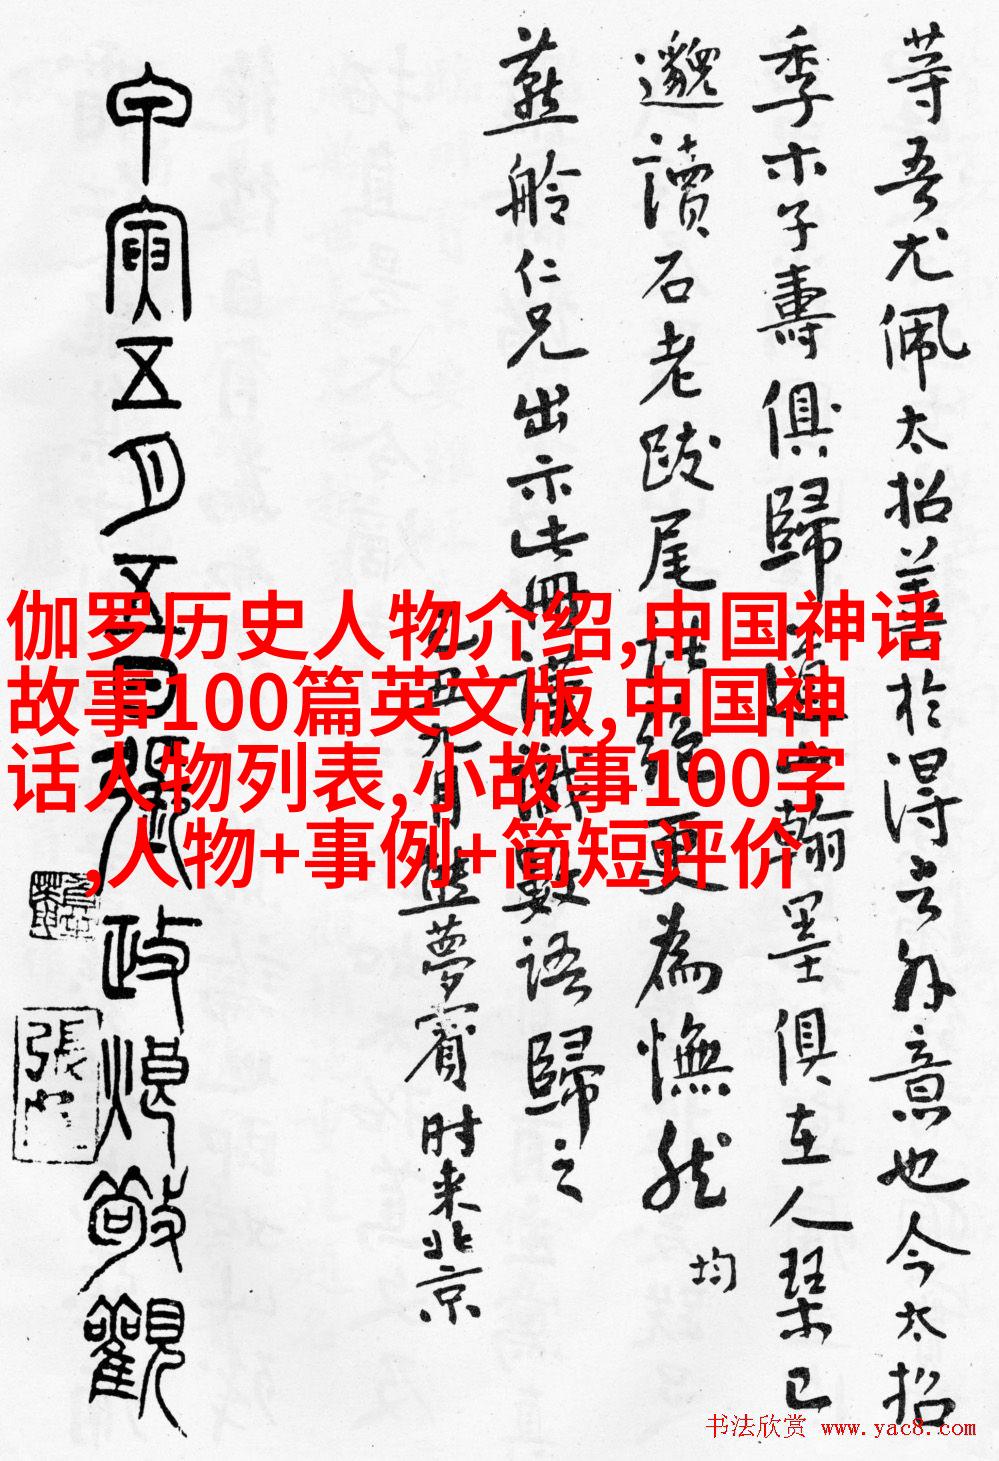 等吾尤佩太招善於得言外意也今太招
季木子壽俱歸道山翰墨俱在人琴已
邈讀石老跋尾語絕更為憮然
均
燕舲仁兄出示此冊謹識數語歸之
丑九月 夢賓时来北京
甲寅五月五日張政烺敬觀
張
伽罗历史人物介绍,中国神话
故事100篇英文版,中国神
话人物列表,小故事100字
,人物+事例+简短评价
书法欣赏 www.yac8.com